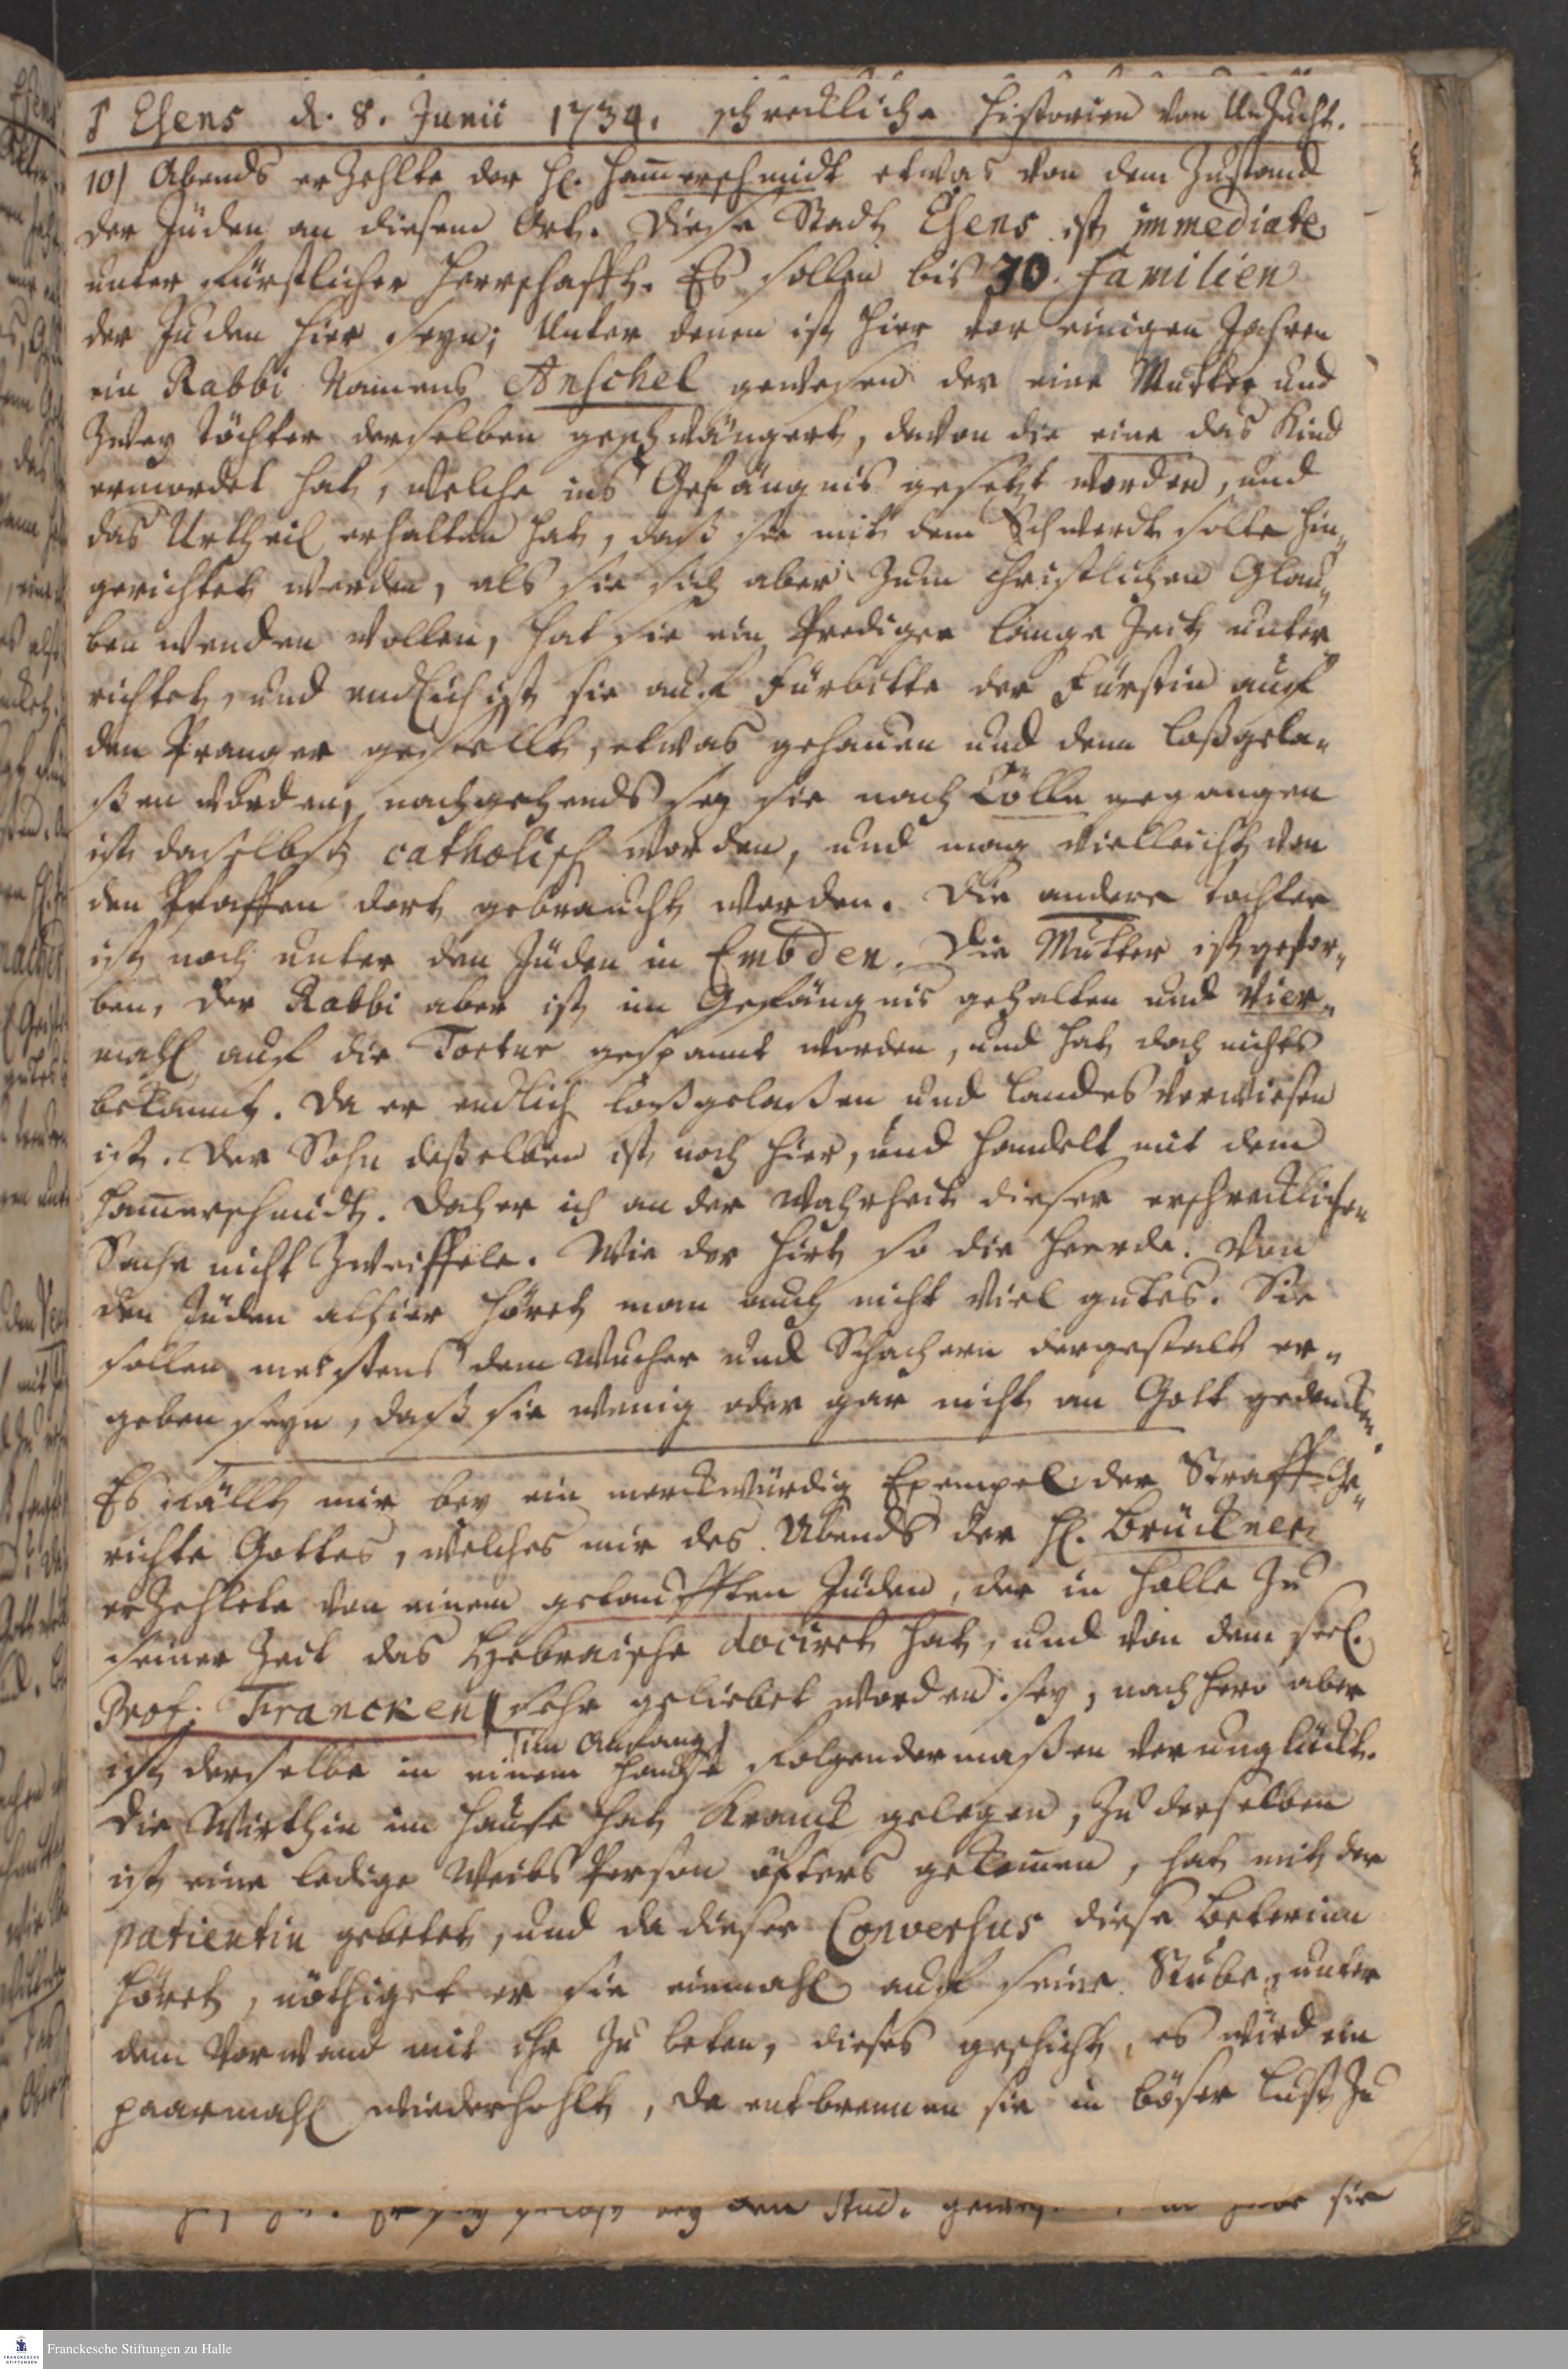 Esens d. 8. Junii 1734. schreckliche Historien von Unzucht.
10) Abends erzehlte der H. Ham̄erschmidt etwas von dem Zustand
der Jüden an diesem Ort. Diese Stadt Esens ist immediate
unter Fürstlicher Herrschafft. Es sollen bis 30. Familien
der Juden hier seyn; Unter denen ist hier vor einigen Jahren
ein Rabbi Namens Anschel gewesen der eine Mutter und
Zwey Töchter derselben geschwängert, davon die eine das Kind
ermordet hat, welche ins Gefängnis gesetzt worden, und
das Urtheil erhalten hat, daß sie mit dem Schwerdt solte hin„
gerichtet werden, als sie sich aber zum christlichen Glau„
ben wenden wollen, hat sie ein Prediger lange Zeit unter„
richtet, und endlich ist sie auf Fürbitte der Fürstin auf
den Pranger gestellt, etwas gehauen und denn loßgela„
ßen worden, nachgehends sey sie nach Cölln gegangen
ist daselbst catholisch worden, und mag vielleicht von
den Pfaffen dort gebraucht werden. Die andere tochter
ist noch unter den Jüden in Embden. Die Mutter ist gestor„
ben, der Rabbi aber ist im Gefängnis gehalten und vier„
mahl auf die Tortur gespannt worden, und hat doch nichts
bekannt. Da er endlich loßgelaßen und Landes verwiesen
ist. Der Sohn deßelben ist noch hier, und handelt mit dem
Ham̄erschmidt. Daher ich an der Wahrheit dieser erschrecklichen
Sache nicht zweiffele. Wie der Hirt so die Heerde. Von
den Jüden alhier höret man auch nicht viel gutes. Sie
sollen meistens dem Wucher und Schachern dergestalt er„
geben seyn, daß sie wenig oder gar nicht an Gott gedencken.
Es fällt mir bey ein merckwürdig Exempel der Straff-Ge„
richte Gottes, welches mir des Abends der H. Brückner
erzehlete von einem getaufften Jüden, der in Halle zu
seiner Zeit das Hebraische dociret hat, und von dem seel.
Prof. Francken sehr geliebet worden sey, nachhero aber
im Anfang
ist derselbe in einem Hause folgendermaßen verunglückt.
Die Wirthin im Hause hat Kranck gelegen, zu derselben
ist eine ledige Weibs Person öfters gekom̄en, hat mit der
patientin gebetet, und da dieser Conversus diese Beterinn
höret, nöthiget er sie einmahl auf seine Stube, unter
dem Vorwand mit ihr zu beten, dieses geschicht, es wird ein
paarmahl wiederhohlt, da entbrennen sie in böser Lust zu
bey den Stud. sie